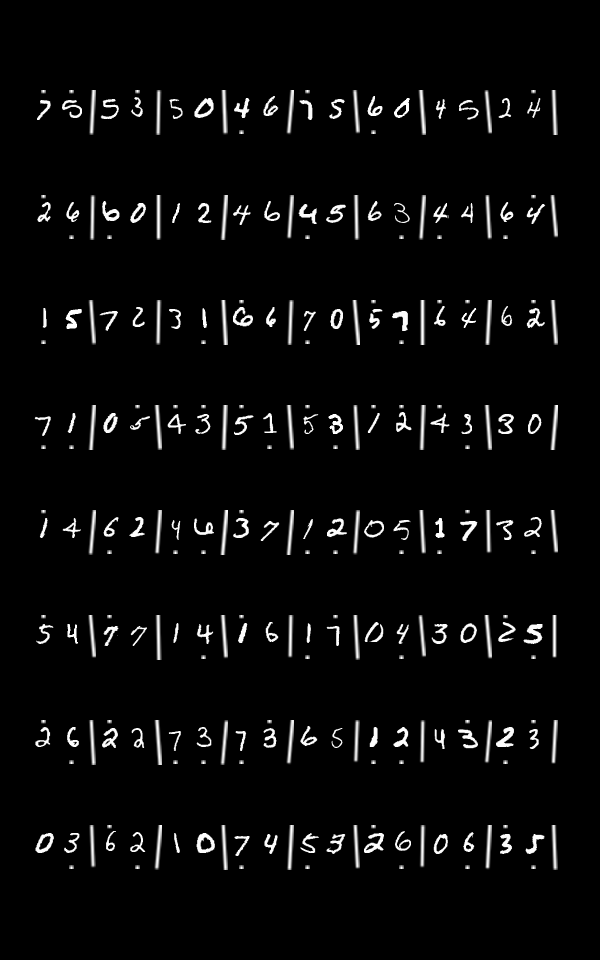 7 5 | 5 3 | 5 0 | 4 6 | 7 5 | 6 0 | 4 5 | 2 4 |
2 6 | 6 0 | 1 2 | 4 6 | 4 5 | 6 3 | 4 4 | 6 4 |
1 5 | 7 2 | 3 1 | 6 6 | 7 0 | 5 7 | 6 4 | 6 2 |
7 1 | 0 5 | 4 3 | 5 1 | 5 3 | 1 2 | 4 3 | 3 0 |
1 4 | 6 2 | 4 6 | 3 7 | 1 2 | 0 5 | 1 7 | 3 2 |
5 4 | 7 7 | 1 4 | 1 6 | 1 7 | 0 4 | 3 0 | 2 5 |
2 6 | 2 2 | 7 3 | 7 3 | 6 5 | 1 2 | 4 3 | 2 3 |
0 3 | 6 2 | 1 0 | 7 4 | 5 3 | 2 6 | 0 6 | 3 5 |